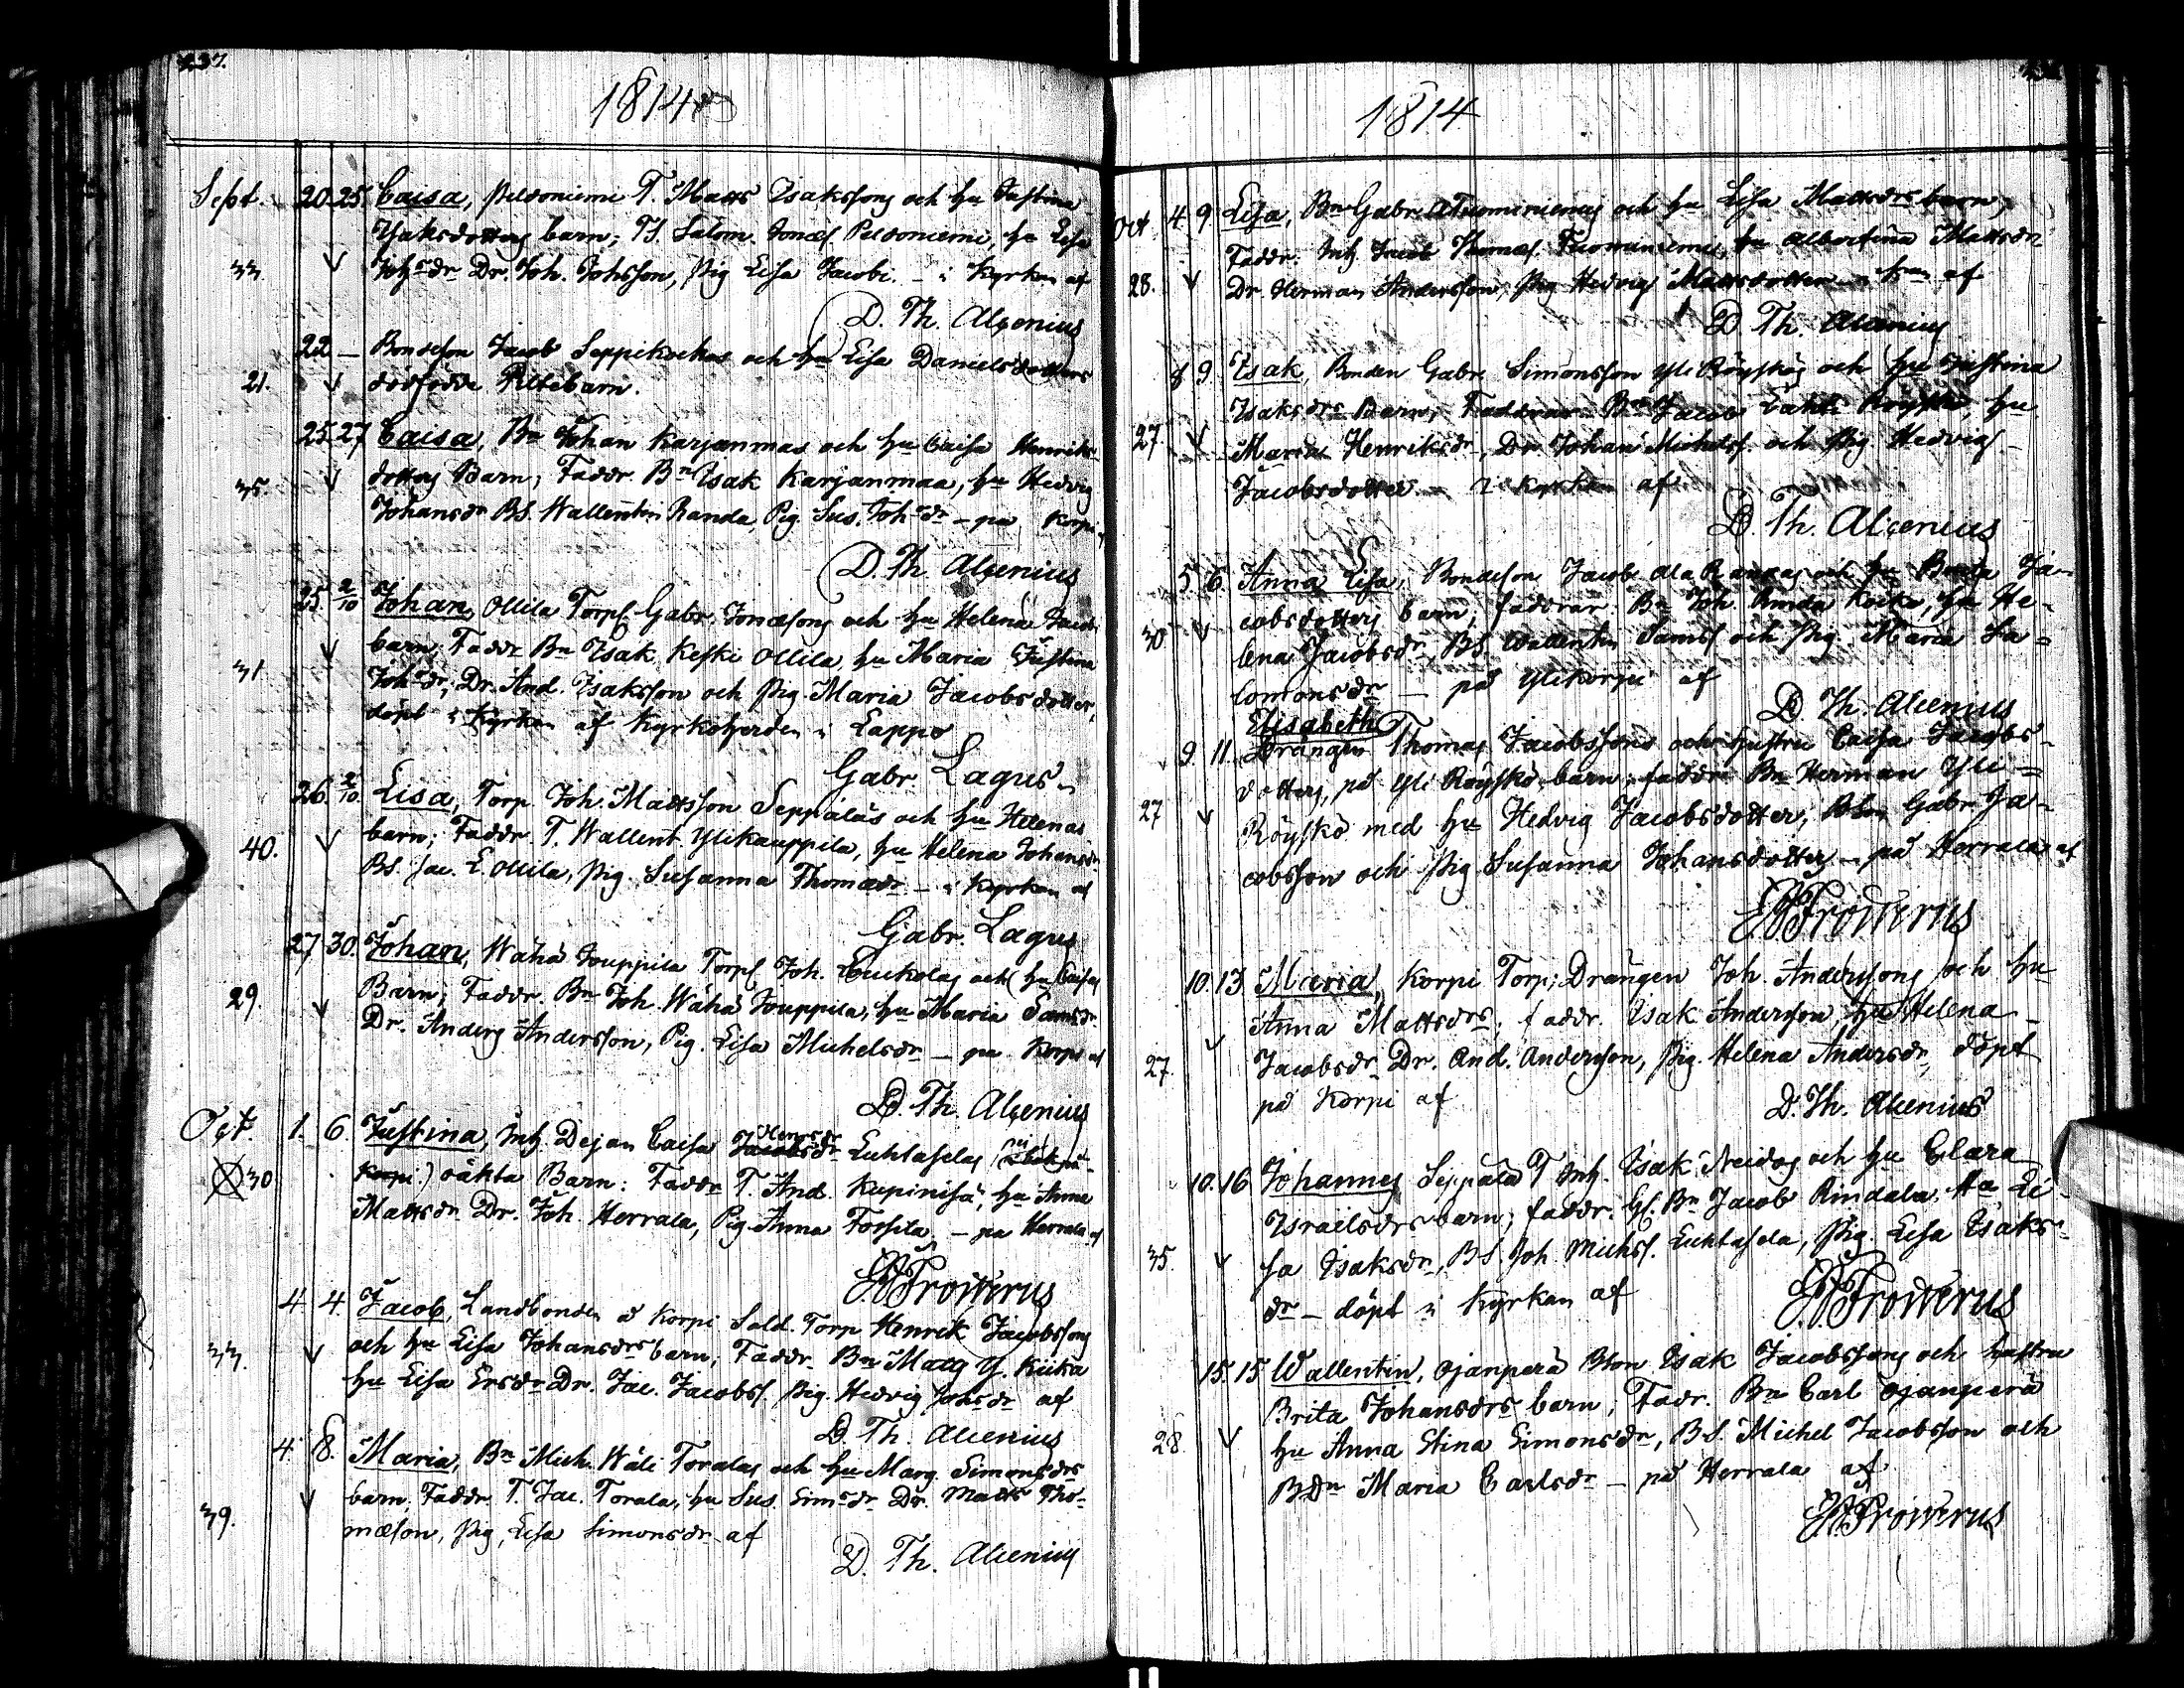 237.
1814
Sept. 20. 25. Caisa, Peldoniemi T. Matts Isakssons och hu Justina
Isaksdotters barn; TS. Salom. Jonæs. Peldoniemi, hu Lisa
33. Johsdr Dr. Joh. Johsson, Pig Lisa Jacobi. - i Kyrkan af
D. Th. Alcenius
22 - Bondeson Jacob Seppikoskos och hu Lisa Danielsdotters
21. dödfödde Piltebarn.
25. 27 Caisa, Bn Johan Karjanmaa och hu Caisa Henriks-
dotters Barn, Faddr. Bn Isak Karjanmaa, hu Hedvig
35. Johansdr BS. Wallentin Randa, Pig. Sus. Johsdr - på Korpi
D. Th. Alcenius
25. 2/10 Johan, Ollila Torp. Gabr. Jonæsons och hu Helena Jacobs
barn. Faddr Bn Isak Keski Ollila, hu Maria Justina
31 Johsdr, Dr. And. Isaksson och Pig. Maria Jacobsdotter,
döpt i Kyrkan af Kyrkoherden i Lappo
Gabr. Lagus
26. 2/10. Lisa, Torp. Joh. Mattsson Seppäläs och hu Helenas
barn; Faddr. T. Wallent. Ylikauppila, hu Helena Johansdr
40. BS Jac. E. Ollila, Pig. Susanna Thomædr - i Kyrkan af
Gabr. Lagus
27 30. Johan, Wähä Jouppila Torp. Joh. Luukolas och hu Caisas
29. Barn; Faddr. Bn Joh. Wähä Jouppila, hu Maria Samsdr
Dr. Anders Andersson, Pig. Lisa Michelsdr - på Korpi af
D. Th. Alcenius
Oct. 1. 6. Justina, Inh. Dejan Caisa Jacobsdr Henrsdr Luhtaselas
30 Korpi) oäkta Barn: Faddr T. And. Kupinisä, hu Anna
Mattsdr Dr. Joh. Herrala, Pig. Anna Forsila, - på Herrala af
Frowerus
4. 4. Jacob, Landbonden å Korpi Sold. Torp Henrik Jacobssons
33. och hu Lisa Johansdrs barn; Faddr. Bn Mattz Y. Kiikka
hu Lisa Ersdr Dr. Jac. Jacobss. Pig. Hedvig Johsdr af
D. Th. Alcenius
4. 8. Maria, Bn Mich. Wäli Toralas och hu Marg. Simonsdrs
barn; Faddr T. Jac. Torala, hu Sus. Simsdr Dr. Matts Tho-
39. mæson, Pig. Lisa Simonsdr af
D. Th. Alcenius
1814
Oct 4 9 Lisa, Bn Gabr. Tuominiemis och hu Lisa Mattsdrs barn,
Faddr. Inh. Jacob Thomæs. Tuominiemi, hu Albertina Mattsdr
28. Dr. Herman Andersson, Pig Hedvig Mattsdotter - af
D. Th. Alcenius
8 9 Isak, Bonden Gabr. Simonsson Yli Röyskös och hu Justina
Isaksdrs Barn; Faddrar. Bn Jacob Lahti Röyskö, hu
27. Maria Henriksdr, Dr. Johan Michelss. och Pig. Hedvig
Jacobsdotter - i Kyrkan af
D. Th. Alcenius
5 6. Anna Lisa, Bondeson Jacob Ala Rannas och hu Brita Ja-
cobsdotters barn; faddrar. Bn Joh. Rinda Koiko, hu He-
30 lena Jacobsdr, BS. Wallentin Samss och Pig. Maria Sa-
lomonsdr - på Ylikorpi af
D Th. Alcenius
Elisabeth
9. 11. Drängen Thomas Jacobssons och hustru Caisa Jacobs-
dotters, på Yli Röyskö barn; faddr. Bn Herman Yli-
27 Röyskö med hu Hedvig Jacobsdotter, BSon Gabr. Ja-
cobsson och Pig. Susanna Johansdotter - på Herrala af
Frowerus
10. 13 Maria, Korpi Torp; Drängen Joh. Anderssons och hu
Anna Mattsdrs; faddr. Isak Andersson, hu Helena
27. Jacobsdr Dr. And. Andersson, Pig. Helena Andersdr, döpt
på Korpi af
D. Th. Alcenius
10. 16 Johannes, Seppälä T Inh. Isak Neidos och hu Clara
Israelsdrs barn; faddr. Gl. Bn Jacob Rindala, Hu Li-
35. sa Isaksdr, BS. Joh. Michss. Luhtasela, Pig. Lisa Isaks-
dr - döpt i Kyrkan af
Frowerus
15. 15 Wallentin, Ojanperä BSon Isak Jacobssons och hustru
Brita Johansdrs barn; Fadr. Bn Carl Ojanperä
28. hu Anna Stina Simonsdr, BS. Michel Jacobsson och
BDr Maria Carlsdr - på Herrala af
Frowerus